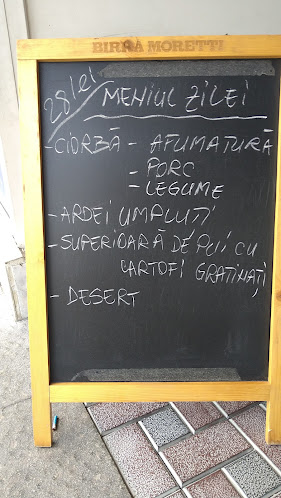 BIRRA MORETTI
28 lei
MENIUL ZILEI
- CIORBĂ - AFUMATURĂ
- PORC
- LEGUME
- ARDEI UMPLUȚI
- SUPERIOARĂ DE PUI CU
CARTOFI GRATINAȚI
- DESERT